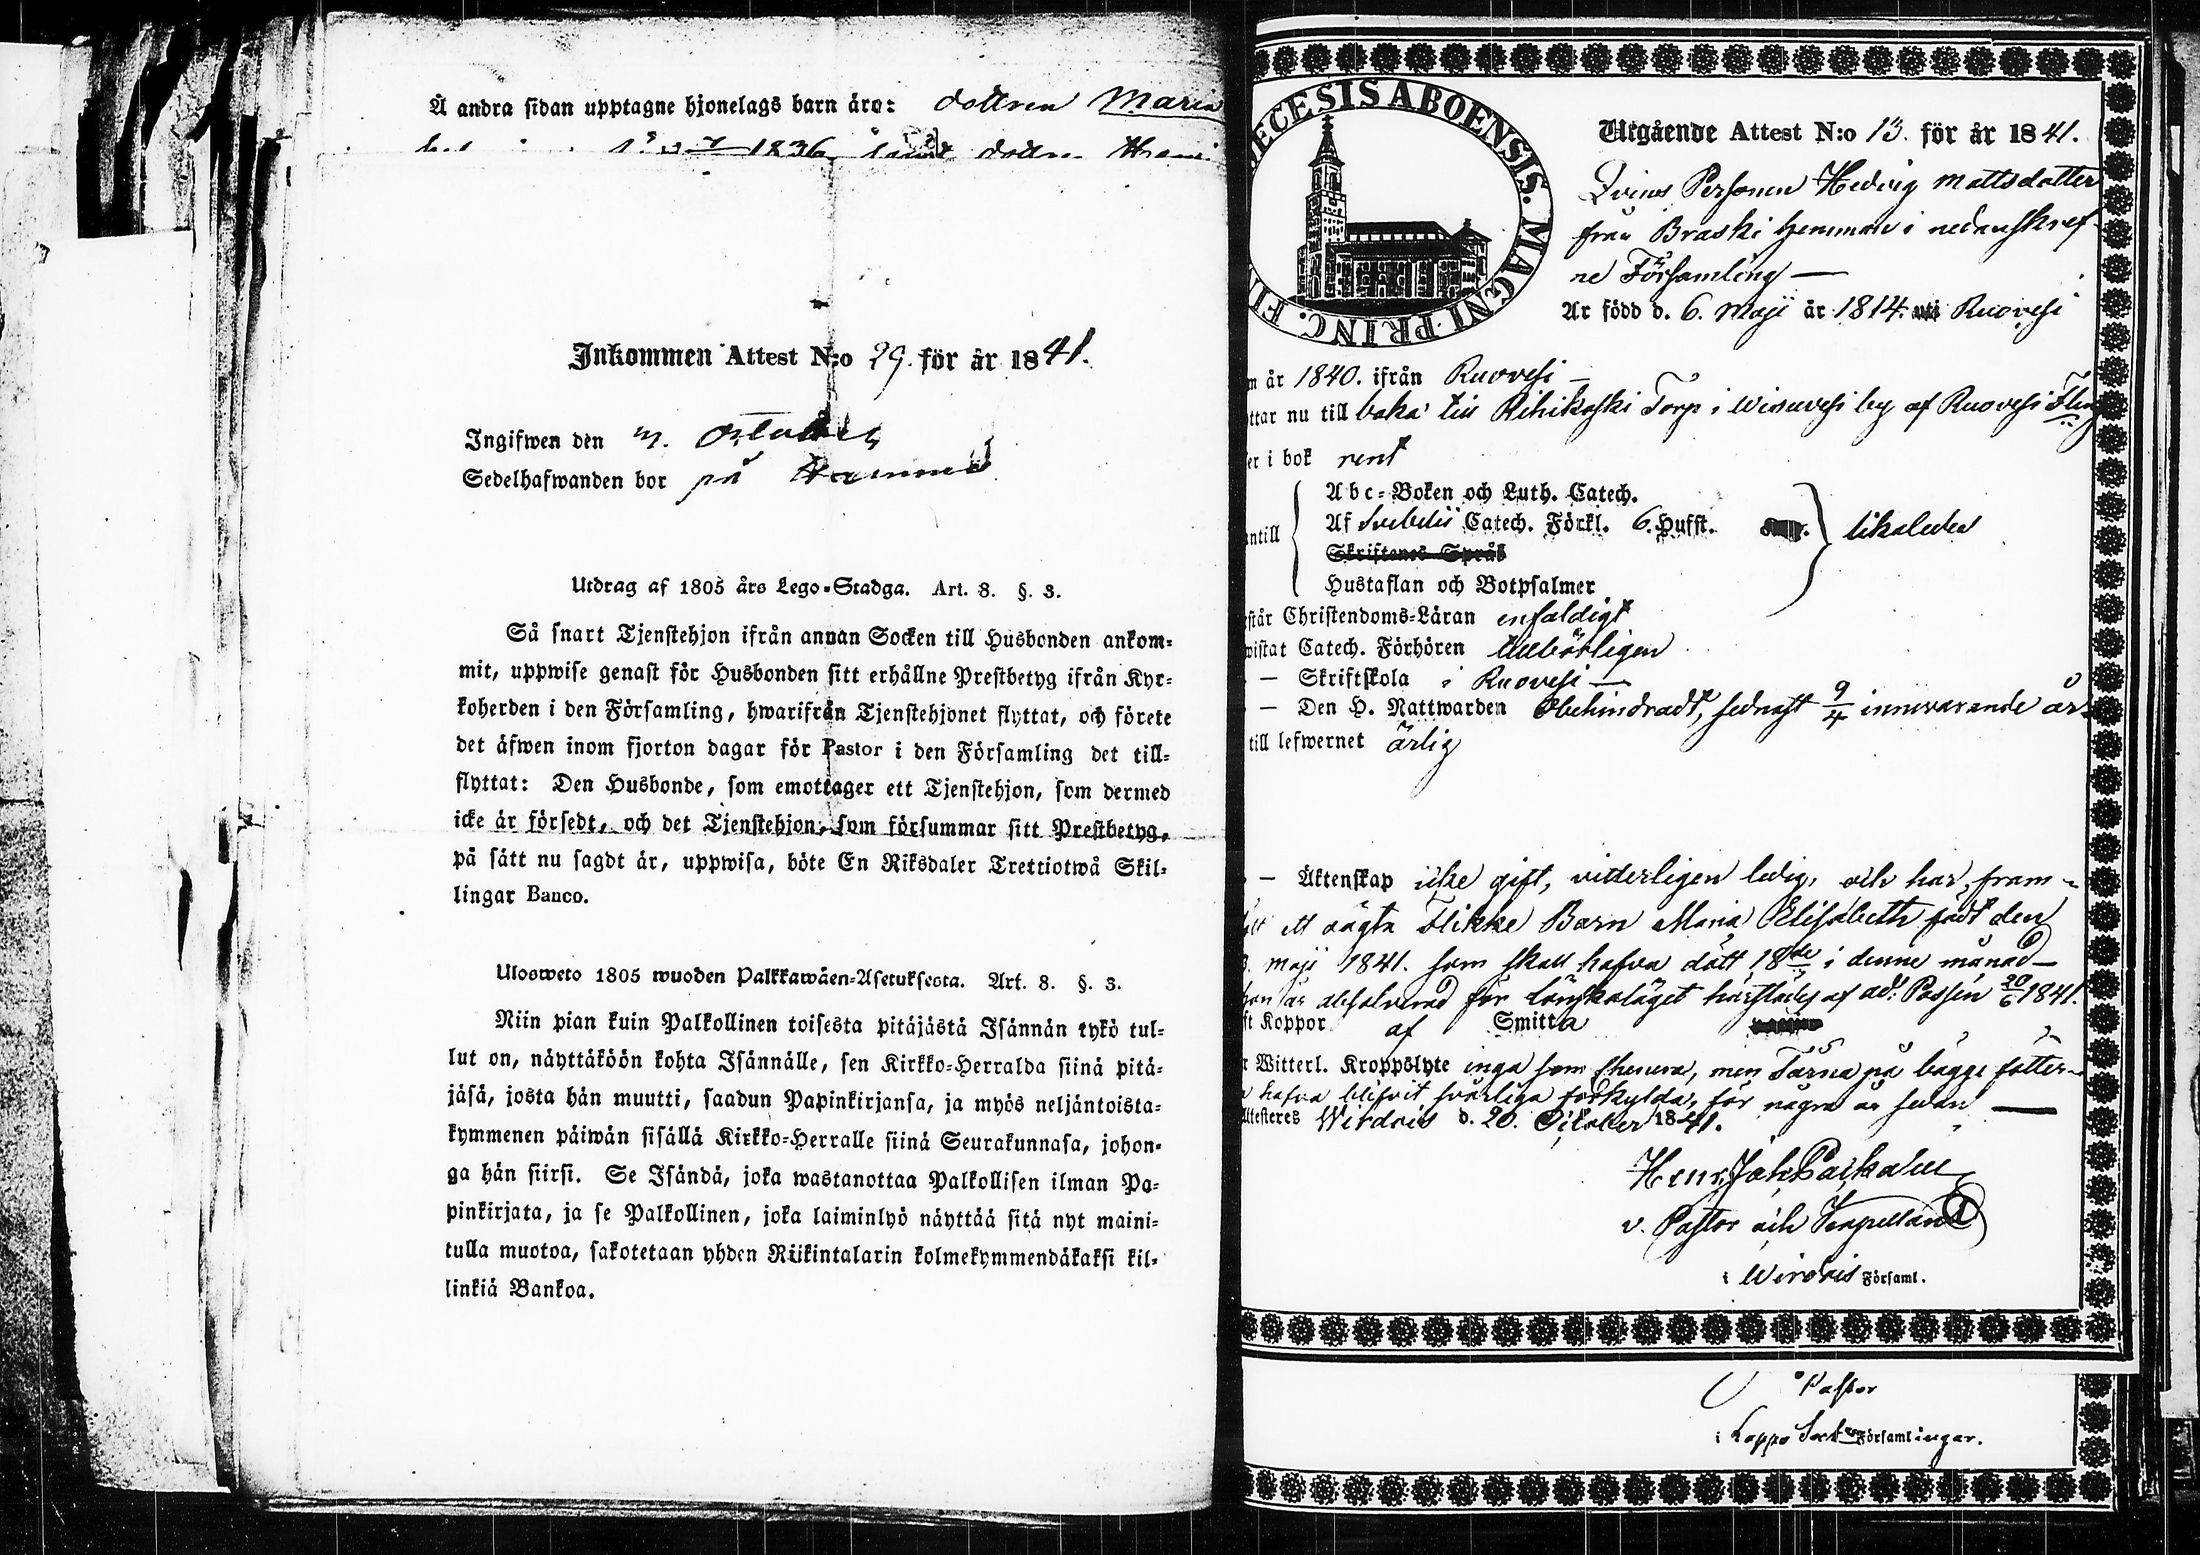 Å andra sidan upptagne hjonelags barn äro: dottren Maria
1836, samt dottren
Inkommen Attest N:o 29. för år 1841.
Ingifwen den
Sedelhafwanden bor på
Utdrag af 1805 års Lego-Stadga. Art. 8. §. 3.
Så snart Tjenstehjon ifrån annan Socken till Husbonden ankom-
mit, uppwise genast för Husbonden sitt erhållne Prestbetyg ifrån Kyr-
koherden i den Församling, hwarifrån Tjenstehjonet flyttat, och förete
det äfwen inom fjorton dagar för Pastor i den Församling det till-
flyttat: Den Husbonde, som emottager ett Tjenstehjon, som dermed
icke är försedt, och det Tjenstehjon, som försummar sitt Prestbetyg,
på sätt nu sagdt är, uppwisa, böte En Riksdaler Trettiotwå Skil-
lingar Banco.
Ulosweto 1805 wuoden Palkkawäen-Asetuksesta. Art. 8. §. 3.
Niin pian kuin Palkollinen toisesta pitäjästä Isännän tykö tul-
lut on, näyttäköön kohta Isännälle, sen Kirkko-Herralda siinä pitä-
jäsä, josta hän muutti, saadun Papinkirjansa, ja myös neljäntoista-
kymmenen päiwän sisällä Kirkko-Herralle siinä Seurakunnasa, johon-
ga hän siirsi. Se Isändä, joka wastanottaa Palkollisen ilman Pa-
pinkirjata, ja se Palkollinen, joka laiminlyö näyttää sitä nyt maini-
tulla muotoa, sakotetaan yhden Riikintalarin kolmekymmendäkaksi kil-
linkiä Bankoa.
ECESIS ABOENSIS. MAGNI PRINC. FI
Utgående Attest N:o 13. för år 1841.
Qvins Personen Hedvig Mattsdotter
från Braski hemman i nedanskref-
ne Församling —
Är född d. 6. Maji år 1814. uti Ruovesi
m år 1840. ifrån Ruovesi —
ttar nu till baka till Rihikoski Torp i Wisuvesi by af Ruovesi
er i bok rent
ntill
Abc-Boken och Luth. Catech.
Af Svebelii Catech. Förkl. 6. Hufst. likaledes
Skriftenes Språk
Hustaflan och Botpsalmer
står Christendoms-Läran enfaldigt
wistat Catech. Förhören tillbörligen
— Skriftskola i Ruovesi —
— Den H. Nattwarden Obehindradt, sednast 9/4 innevarande år.
till lefwernet ärlig
— Äktenskap icke gift, vitterligen ledig, och har fram-
ett oägta Flikke Barn Maria Elisabeth född den
Maji 1841. som skall hafva dött 18de i denne månad —
hon är absolverad för lönskaläget härstädes af ad: Passén 20/6 1841.
ft Koppor af Smitta
Witterl. Kroppslyte inga som synerva, men Tårna på bägge fötter-
hafva blifvit svårliga förkylda, för några år sedan —
Attesteres Wirdois d. 20. October 1841.
Henr. Joh.
v. Pastor och Kapellan
i Wirdois Församl.
Pastor
i Loppo Församlingar.